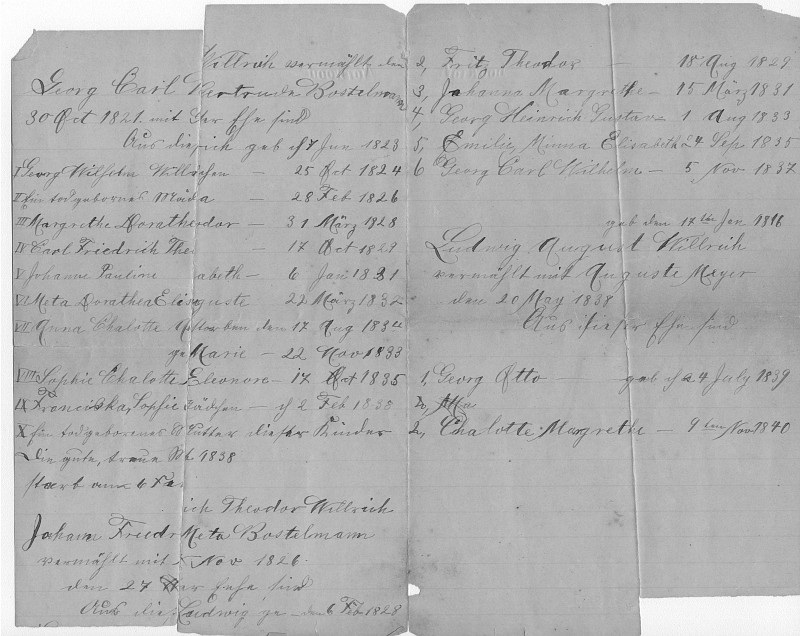 Willrich vermählt den
Georg Carl Gertruda Bostelmann
30 Oct 1821 mit
der Ehe sind
Aus die rich geb d 7 Jun 1823
I Georg Wilhelm Will 25 Oct 1824
II Ein todgebornes Mäda 28 Feb 1826
III Margrethe Dorathe odor – 31 März 1828
IV Carl Friedrich The 17 Oct 1829
V Johanne Pauline abeth – 6 Jan 1831
VI Meta Dorathea Elis guste 22 März 1832
VII Anna Chalotte storben den 17 Aug 1832
ge Marie – 22 Nov 1833
VIII Sophie Chalotte Eleonore – 17 Oct 1835
IX Franciska, Sophie ädchen – d 2 Feb 1838
X Ein todgeborenes Mutter dieser Kinder
Die gute, treue Feb 1838
starb am 6
ich Theodor Willrich
Johann Friedr Meta Bostelmann
vermählt mit Nov 1826.
den 27 Ehe sind
Aus die Ludwig ge – den 6 Feb 1828
2, Fritz Theodor – 18 Aug 1829
3, Johanna Margrethe – 15 März 1831
4, Georg Heinrich Gustav – 1 Aug 1833
5, Emilie, Minna Elisabeth 24 Sep 1835
6 Georg Carl Wilhelm – 5 Nov 1837
geb den 17ten Jan 1816
Ludwig August Willrich
vermählt mit Auguste Meyer
den 20 May 1838
Aus dieser Ehe sind
1, Georg Otto – geb d 24 July 1839
2,
2, Chalotte, Margrethe – 9ten Nov 1840